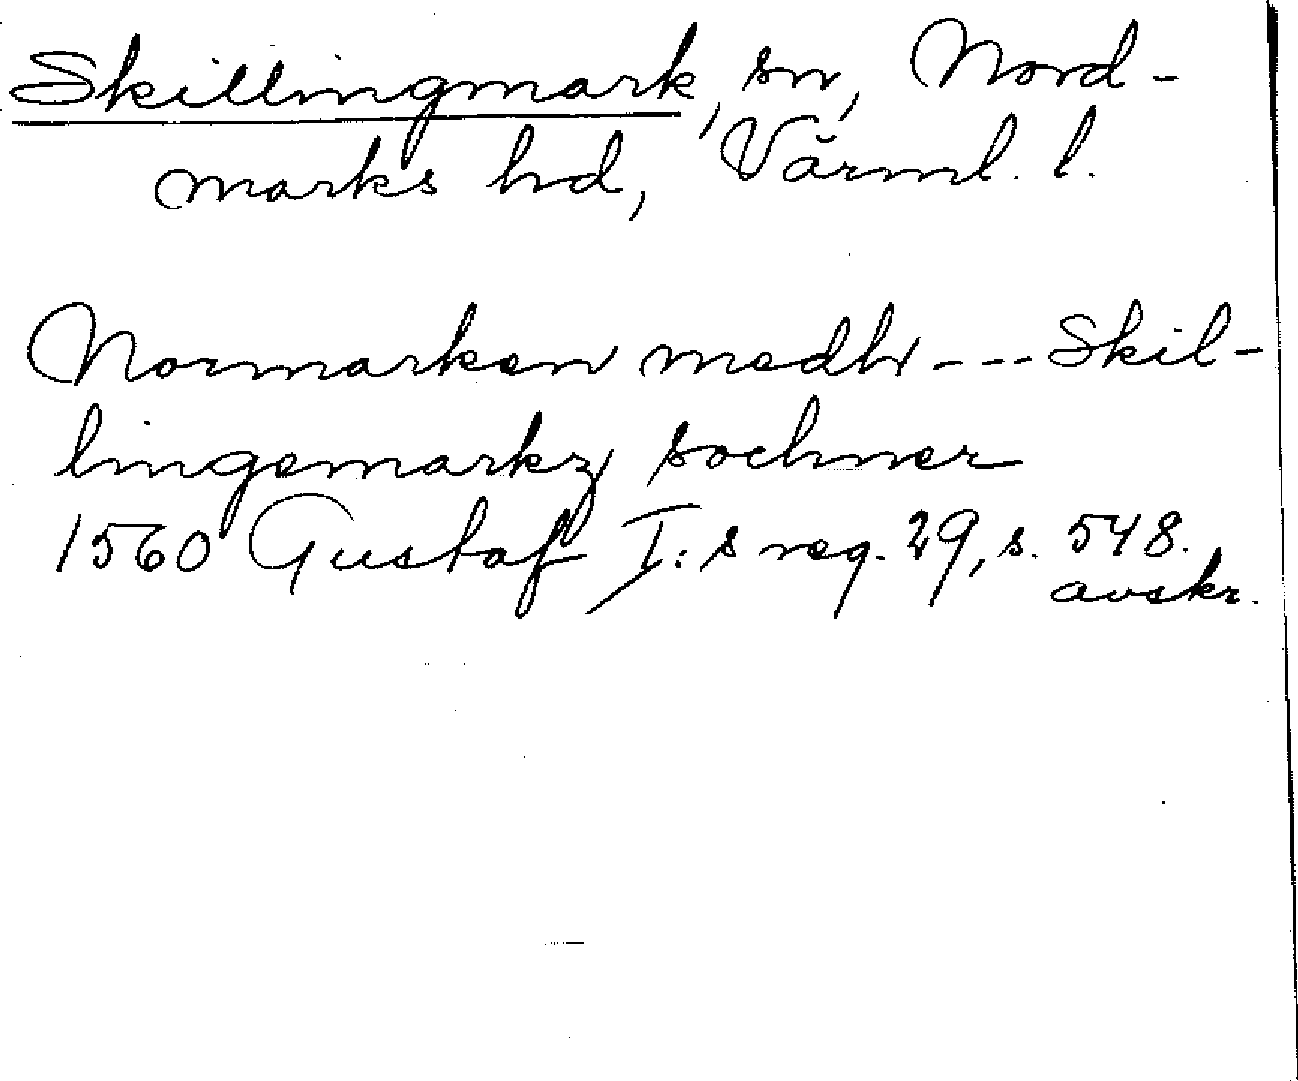 Skillingmark, sn, Nord-
marks hd, Värml. l.
Normarken medh --- Skil-
lingemarkz sochner
1560 Gustaf I:s reg. 29, s. 548.
avskr.